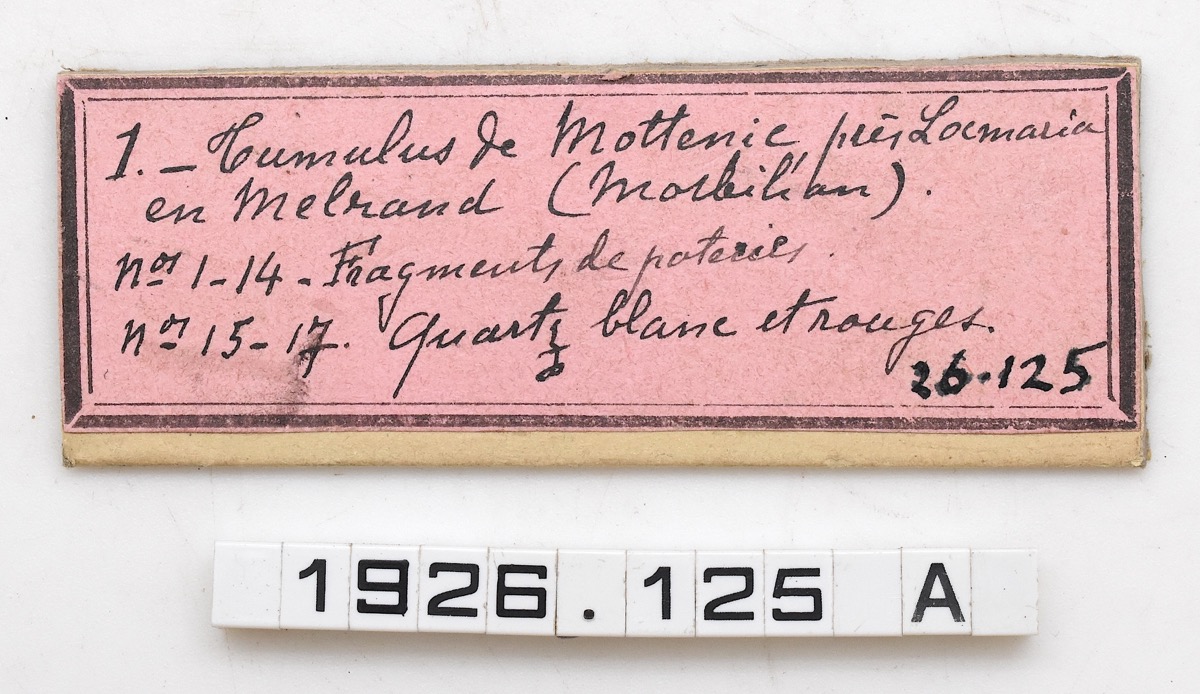 1. – Tumulus de Mottenic près Locmaria
en Melrand (Morbihan).
nos 1-14 - Fragments de poteries.
nos 15-17. Quartz blanc et rouges.
26.125
1926.125 A